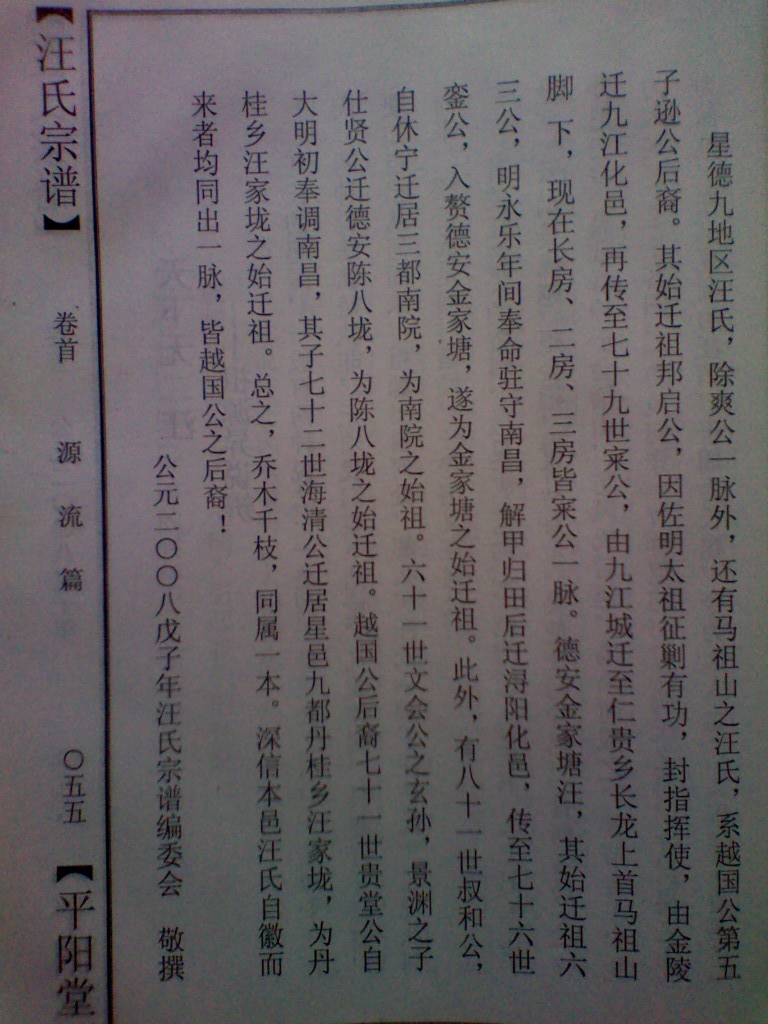 星德九地区汪氏，除爽公一脉外，还有马祖山之汪氏，系越国公第五
子逊公后裔。其始迁祖邦启公，因佐明太祖征剿有功，封指挥使，由金陵
迁九江化邑，再传至七十九世寀公，由九江城迁至仁贵乡长龙上首马祖山
脚下，现在长房、二房、三房皆寀公一脉。德安金家塘汪，其始迁祖六
三公，明永乐年间奉命驻守南昌，解甲归田后迁浔阳化邑，传至七十六世
銮公，入赘德安金家塘，遂为金家塘之始迁祖。此外，有八十一世叔和公，
自休宁迁居三都南院，为南院之始祖。六十一世文会公之玄孙，景渊之子
仕贤公迁德安陈八垅，为陈八垅之始迁祖。越国公后裔七十一世贵堂公自
大明初奉调南昌，其子七十二世海清公迁居星邑九都丹桂乡汪家垅，为丹
桂乡汪家垅之始迁祖。总之，乔木千枝，同属一本。深信本邑汪氏自徽而
来者均同出一脉，皆越国公之后裔！
公元二〇〇八戊子年汪氏宗谱编委会 敬撰
【汪氏宗谱】 卷首 源流篇 〇五五 【平阳堂